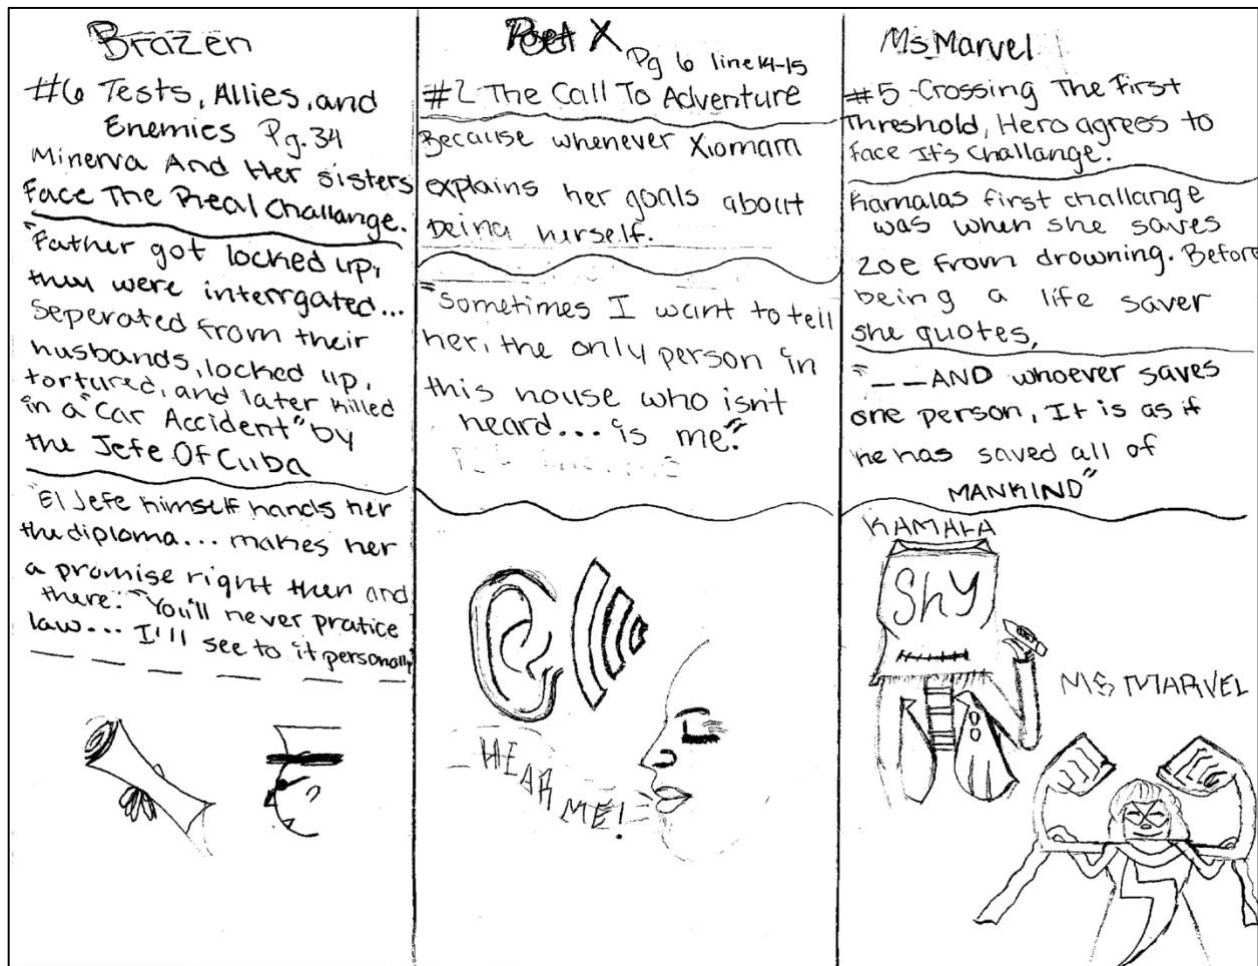 Brazen
#6 Tests, Allies, and
Enemies Pg. 34
Minerva And Her sisters
Face The Real Challange.
"Father got locked up,
they were interrgated...
seperated from their
husbands, locked up,
tortured, and later killed
in a "Car Accident" by
the Jefe Of Cuba
"El Jefe himself hands her
the diploma... makes her
a promise right then and
there: "You'll never pratice
law... I'll see to it personally"
Poet X
Pg 6 line 14-15
#2 The Call To Adventure
Because whenever Xiomara
explains her goals about
being herself.
"Sometimes I want to tell
her, the only person in
this house who isn't
heard... is me."
HEAR ME!
Ms Marvel
#5 - Crossing The First
Threshold, Hero agrees to
face It's challange.
Kamalas first challange
was when she saves
Zoe from drowning. Before
being a life saver
she quotes,
"__AND whoever saves
one person, It is as if
he has saved all of
MANKIND"
KAMALA
Shy
MS MARVEL